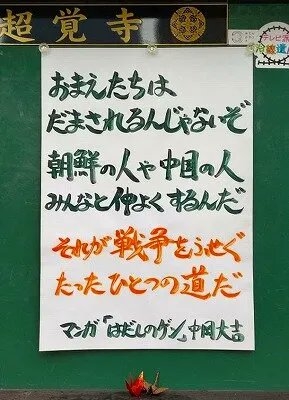 超覚寺
おまえたちは
だまされるんじゃないぞ
朝鮮の人や中国の人
みんなと仲よくするんだ
それが戦争をふせぐ
たったひとつの道だ
マンガ「はだしのゲン」中岡大吉